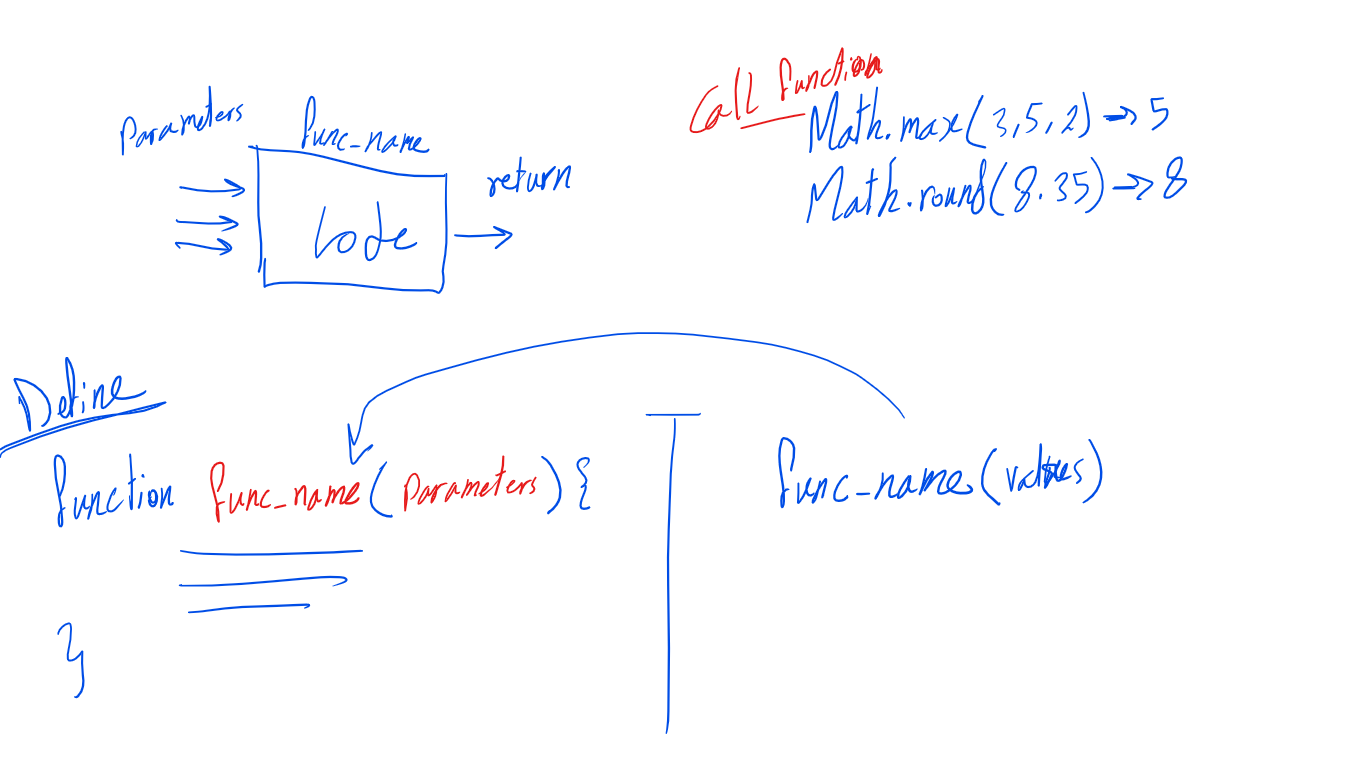 Parameters
func_name
Code
return
Call function
Math.max(3,5,2) → 5
Math.round(8.35) → 8
Define
function func_name(parameters){
}
func_name(values)